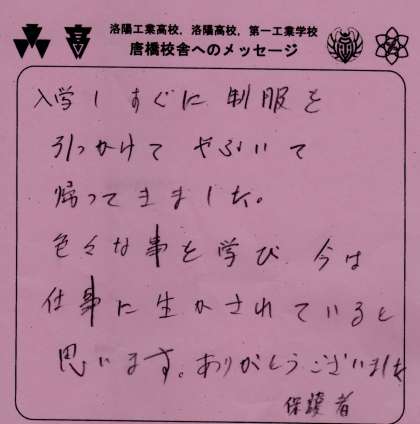 洛陽工業高校，洛陽高校，第一工業学校
唐橋校舎へのメッセージ
高
入学し すぐに 制服を
引っかけて やぶいて
帰ってきました。
色々な事を学び 今は
仕事に生かされていると
思います。ありがとうございました
保護者